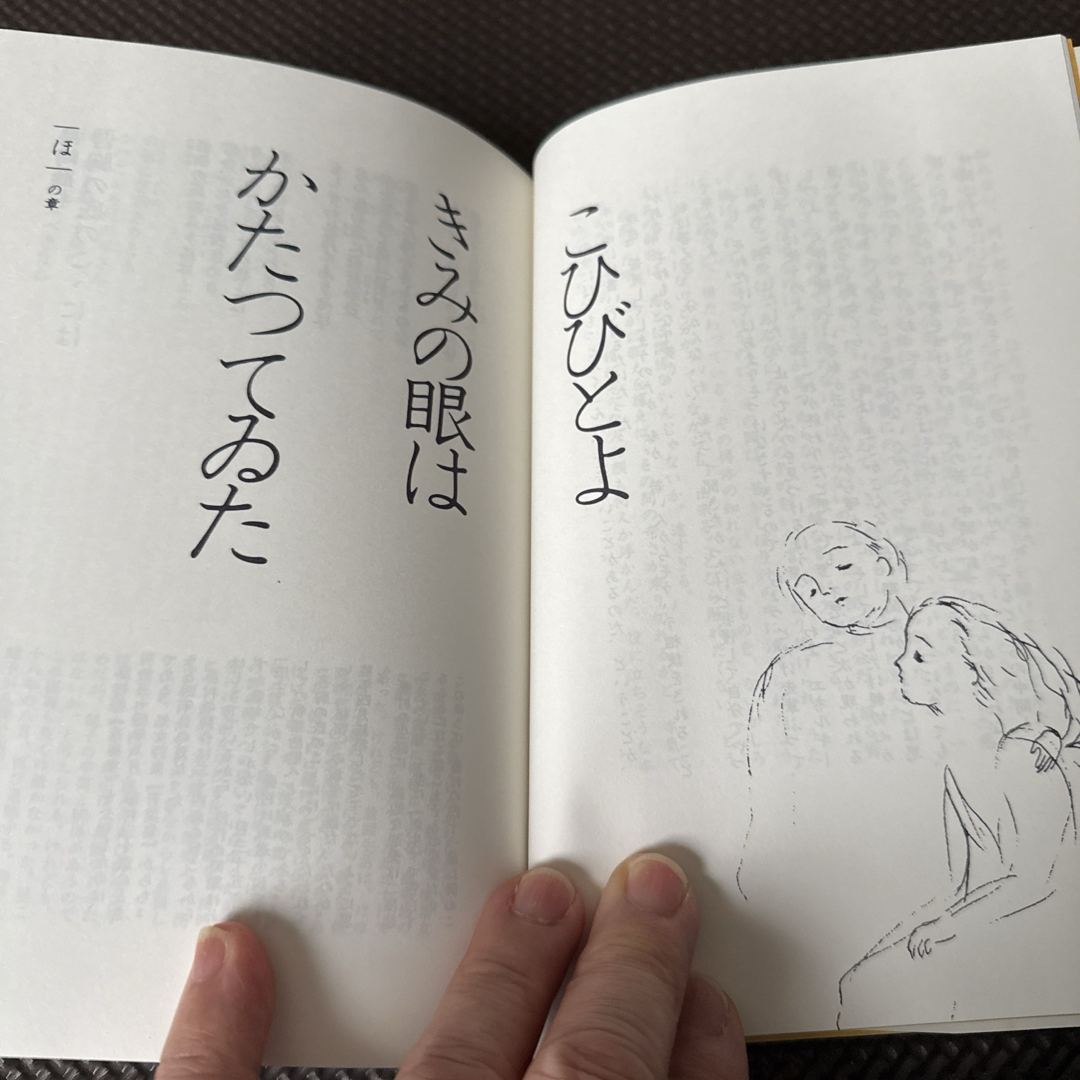 こひびとよ
きみの眼は
かたつてゐた
「ほ」の章